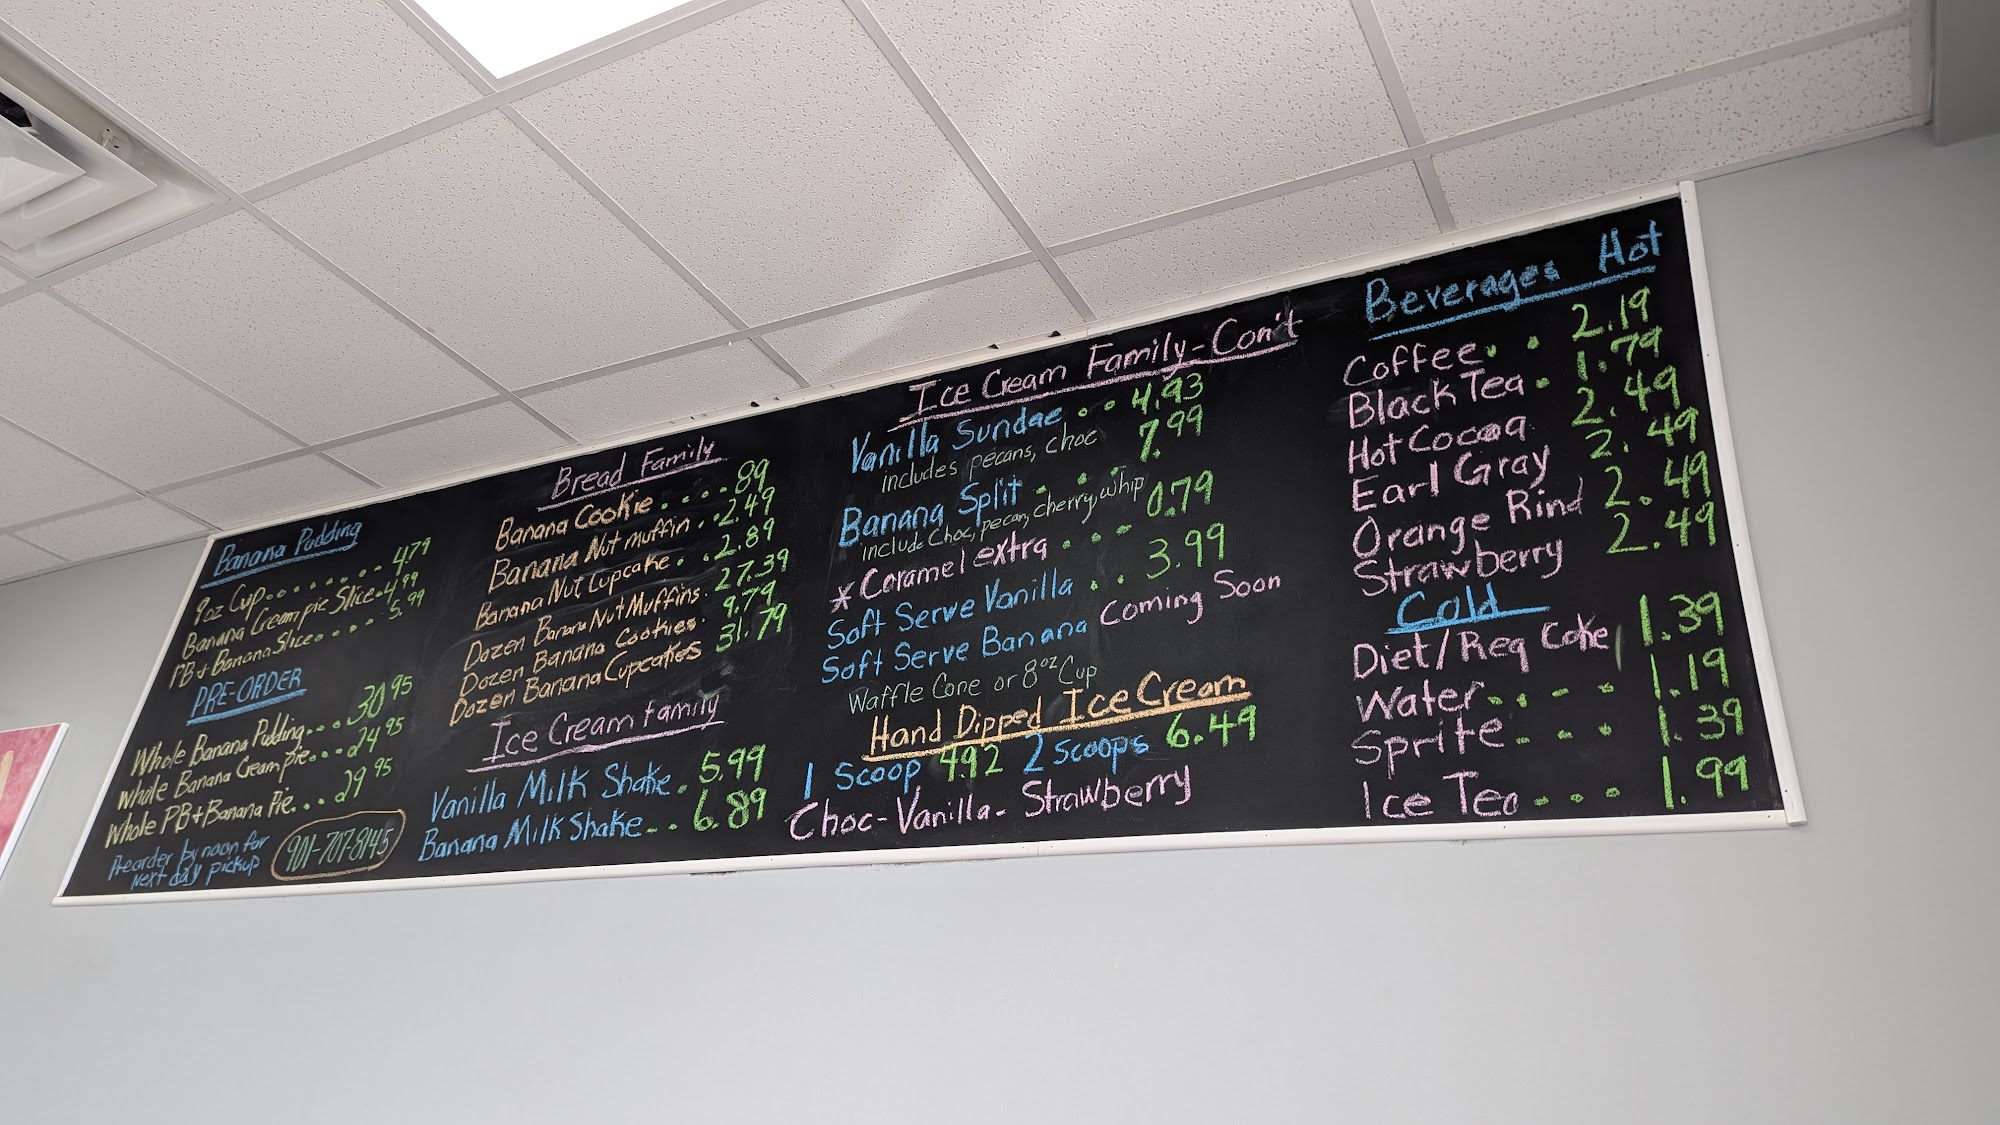 Banana Pudding
9oz Cup....... 4.79
Banana Cream pie Slice. 4.99
PB+ Banana Slice..... 5.99
PRE-ORDER
Whole Banana Pudding... 30 95
Whole Banana Cream pie.... 24 95
Whole PB+Banana Pie... 29 95
Preorder by noon for
Next day pickup
901-707-8145
Bread Family
Banana Cookie..... .89
Banana Nut muffin .. 2.49
Banana Nut Cupcake. . 2.89
Dozen Banana Nut Muffins. 27.39
Dozen Banana Cookies. 9.79
Dozen Banana Cupcakes 31.79
Ice Cream Family
Vanilla Milk Shake. 5.99
Banana Milk Shake... 6.89
Ice Cream Family-Con't
Vanilla Sundae .. 4.93
includes pecans, choc
Banana Split... 7.99
include Choc, pecan, cherry, whip
*Caramel extra ... 0.79
Soft Serve Vanilla ... 3.99
Soft Serve Banana Coming Soon
Waffle Cone or 8oz Cup
Hand Dipped Ice Cream
1 Scoop 4.92 2 scoops 6.49
Choc-Vanilla-Strawberry
Beverages Hot
Coffee... 2.19
Black Tea. 1.79
Hot Cocoa 2.49
Earl Gray 2.49
Orange Rind 2.49
Strawberry 2.49
Cold
Diet/Reg Coke 1.39
Water.... 1.19
Sprite.... 1.39
Ice Tea.... 1.99